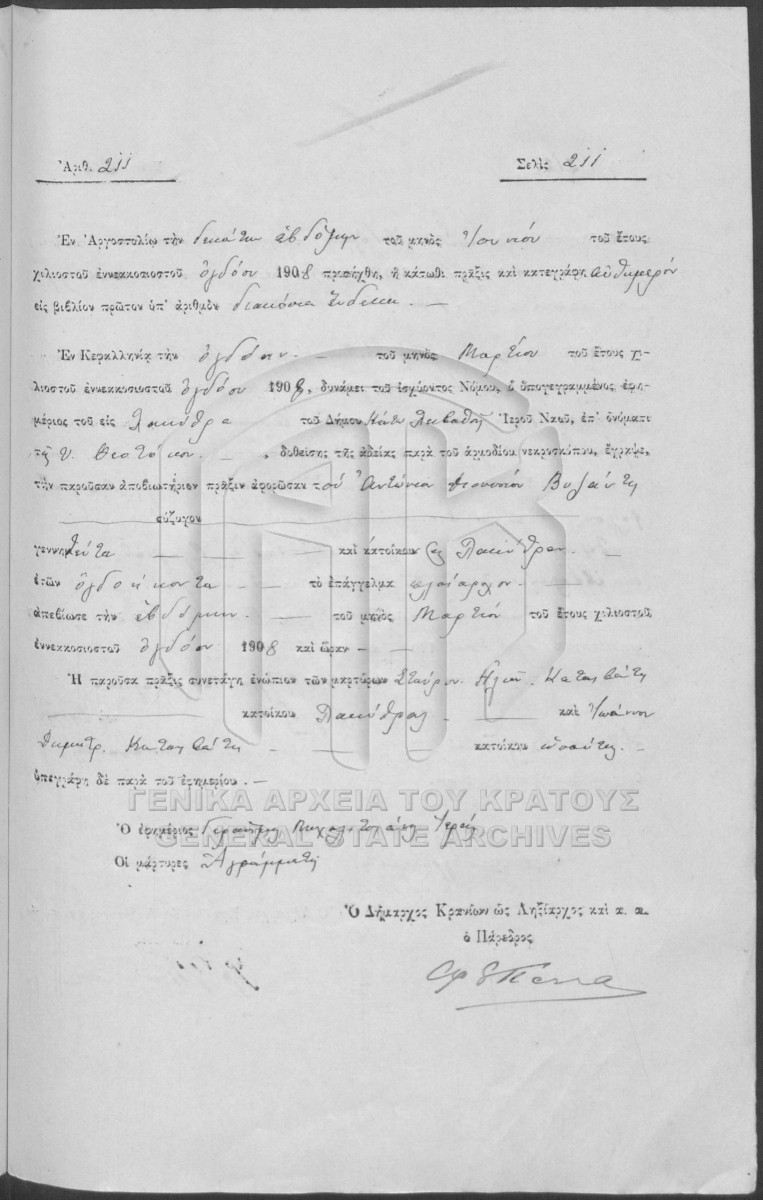 Ἀριθ. 211
Σελὶς 211
Ἐν Ἀργοστολίῳ τὴν δεκάτην ἑβδόμην τοῦ μηνὸς Ἰουνίου τοῦ ἔτους
χιλιοστοῦ ἐννεακοσιοστοῦ ὀγδόου 1908 προσήχθη, ἡ κάτωθι πρᾶξις καὶ κατεγράφη αὐθημερόν
εἰς βιβλίον πρῶτον ὑπ' ἀριθμὸν διακόσια ἕνδεκα. —
Ἐν Κεφαλληνίᾳ τὴν ὀγδόην. — τοῦ μηνὸς Μαρτίου τοῦ ἔτους χι-
λιοστοῦ ἐννεακοσιοστοῦ ὀγδόου 1908, δυνάμει τοῦ ἰσχύοντος Νόμου, ὁ ὑπογεγραμμένος ἐφη-
μέριος τοῦ εἰς Λακύθρα τοῦ Δήμου Κάτω Λειβαθοῦς Ἱεροῦ Ναοῦ, ἐπ' ὀνόματι
τῆς Υ. Θεοτόκου. — , δοθείσης τῆς ἀδείας παρὰ τοῦ ἁρμοδίου νεκροσκόπου, ἔγραψε,
τὴν παροῦσαν ἀποβιωτήριον πρᾶξιν ἀφορῶσαν τοῦ Ἀντώνιον Διονυσίου Βυζάντη
σύζυγον
γεννηθέντα — — — — καὶ κατοίκου εἰς Λακύθραν. —
ἐτῶν ὀγδοήκοντα — — τὸ ἐπάγγελμα πλοίαρχον. —
ἀπεβίωσε τὴν ἑβδόμην. — τοῦ μηνὸς Μαρτίου τοῦ ἔτους χιλιοστοῦ
ἐννεακοσιοστοῦ ὀγδόου 1908 καὶ ὥραν — —
Ἡ παροῦσα πρᾶξις συνετάγη ἐνώπιον τῶν μαρτύρων Σταύρου Ἠλία Καταιβάτη
κατοίκου Λακύθρας. — — καὶ Ἰωάννου
Δημητρ. Καταιβάτη — — — — κατοίκου ὡσαύτως. —
ὑπεγράφη δὲ παρὰ τοῦ ἐφημερίου. —
ΓΕΝΙΚΑ ΑΡΧΕΙΑ ΤΟΥ ΚΡΑΤΟΥΣ
Ὁ ἐφημέριος Γεράσιμος Ἱερεύς
GENERAL STATE ARCHIVES
Οἱ μάρτυρες Ἀγράμματοι
Ὁ Δήμαρχος Κρανίων ὡς Ληξίαρχος καὶ α. α.
ὁ Πάρεδρος